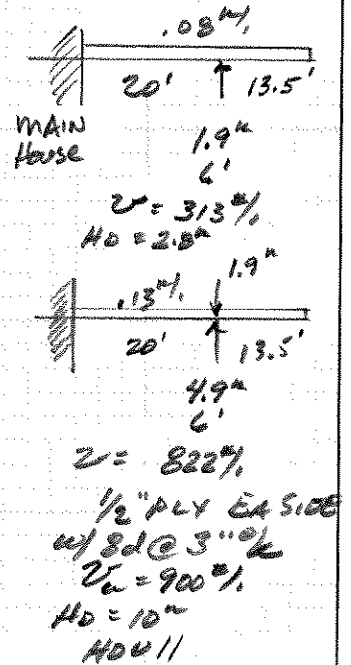 .08ᵏ/,
20' 13.5'
MAIN
House
1.9ᵏ
6'
v = 313#/,
HD = 2.8ᵏ
.13ᵏ/, 1.9ᵏ
20' 13.5'
4.9ᵏ
6'
v = 822#/,
1/2" PLY EA SIDE
w/ 8d @ 3" o/c
vₐ = 900#/,
HD = 10ᵏ
HDU11